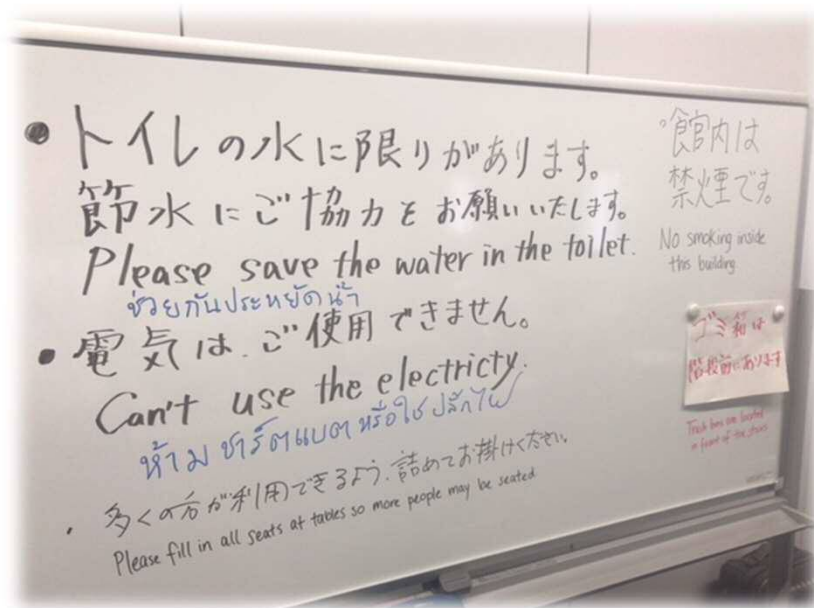 • トイレの水に限りがあります。
節水にご協力をお願いいたします。
Please save the water in the toilet.
ช่วยกันประหยัดน้ำ
• 電気は、ご使用できません。
Can't use the electricty.
ห้าม ชาร์ตแบต หรือใช้ ปลั๊กไฟ
• 多くの方が利用できるよう、詰めてお掛けください。
Please fill in all seats at tables so more people may be seated
° 館内は
禁煙です。
No smoking inside
this building
ゴミ箱は
階段前にあります
Trash bins are located
in front of the stairs